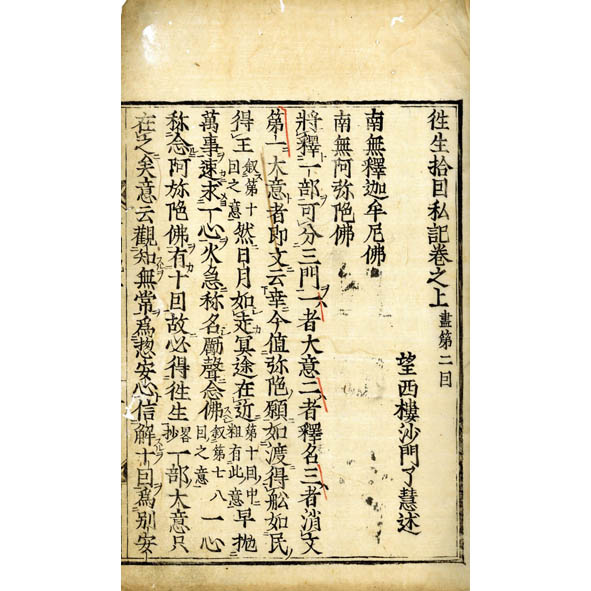 徃生拾囙私記卷之上 盡第二囙
望西樓沙門了慧述
南無釋迦牟尼佛
南無阿弥陀佛
將釋一部可分三門一者大意二者釋名三者消文
第一大意者即文云幸今值弥陀願如渡得舩如民
得王叙第十囙之意然日月如走冥途在近第十囙中粗有此意早抛
萬事速求一心火急称名勵聲念佛叙第七八囙之意一心
称念阿弥陀佛有十囙故必得徃生畧抄一部大意只
在之矣意云觀知無常爲惣安心信解十囙爲別安